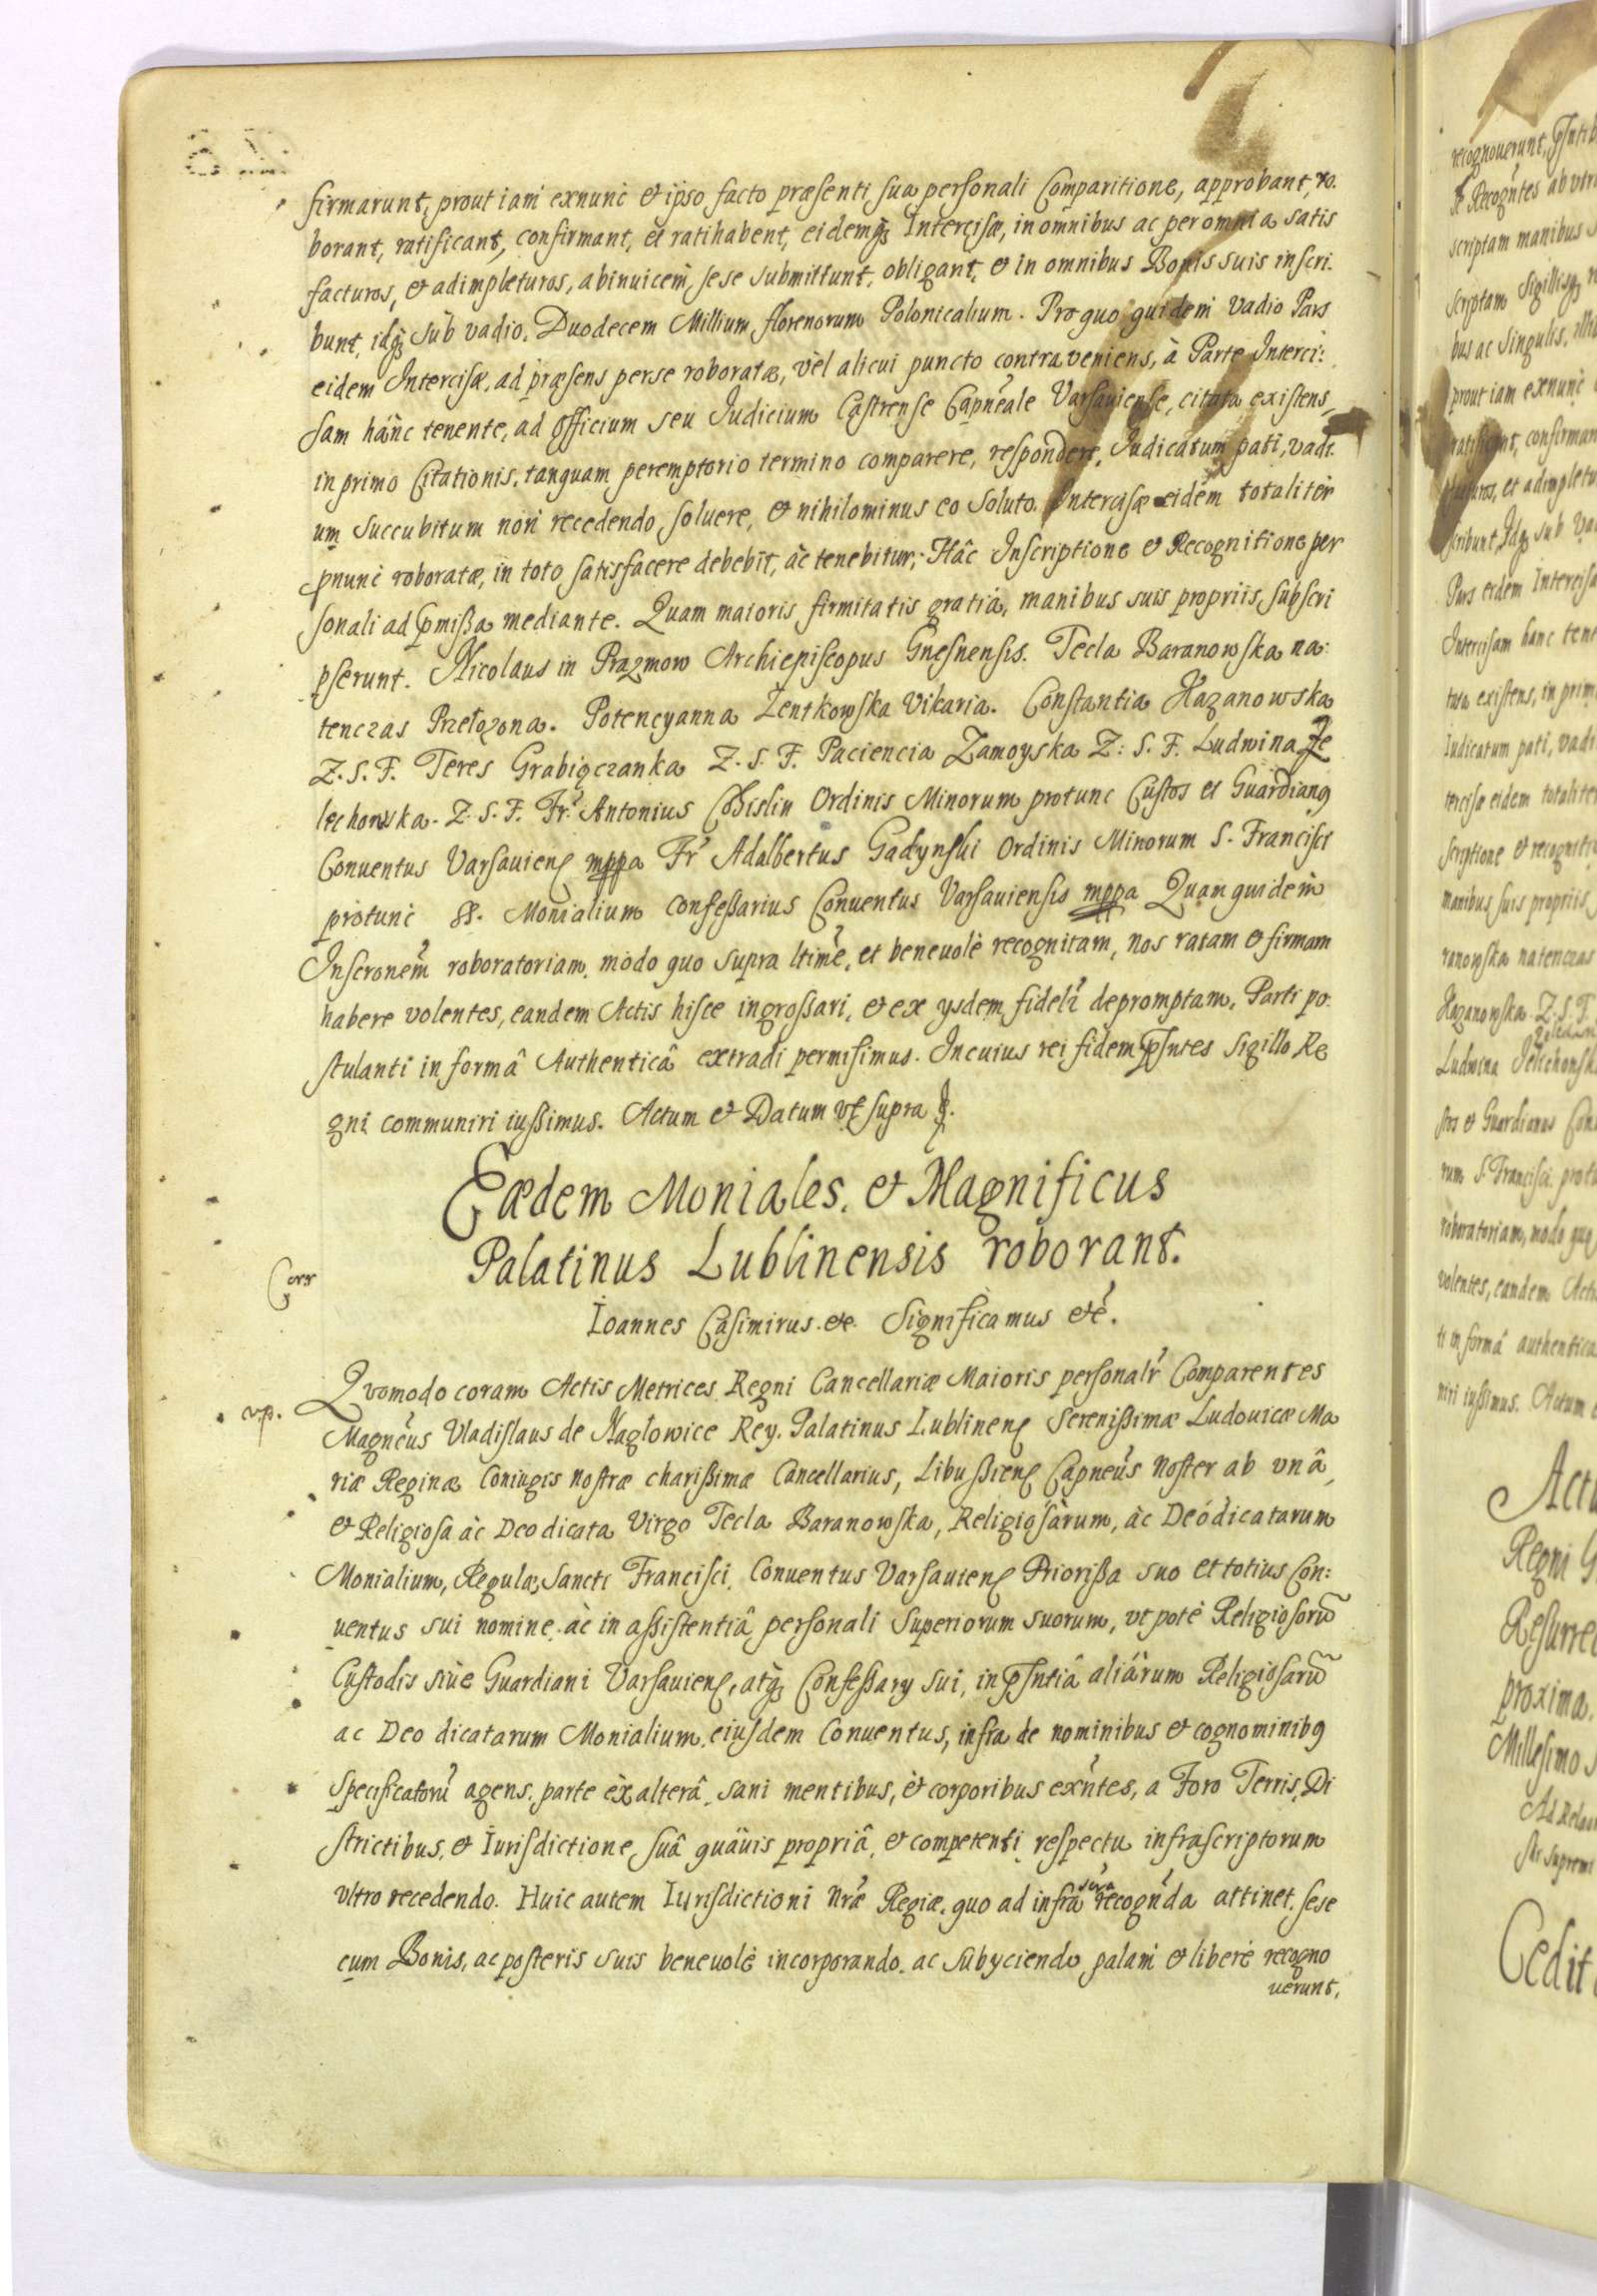 firmarunt, prout iam exnunc et ipso facto præsenti sua personali Comparitione, approbant, ro.
borant, ratificant, confirmant, et ratihabent, eidemq Intercisæ, in omnibus ac per omnia satis
facturos, et adimpleturos, abinuicem, sese submittunt, obligant, et in omnibus Bonis suis inscri.
bunt, idq sub vadio, Duodecem Millium florenorum Polonicalium. Pro quo quidem vadio Pars
eidem Intercisæ, ad præsens per se roboratæ, vel alicui puncto contraveniens, à Parte Interci:
sam hanc tenente, ad Officium seu Iudicium Castrense Capneale Varsauiense, citata existens,
in primo Citationis, tanquam peremptorio termino comparere, respondere, Iudicatum pati, vadi.
um succubitum non recedendo, soluere, et nihilominus eo soluto, Intercisæ eidem totaliter
pnunc roboratæ, in toto satisfacere debebit, ac tenebitur; Hâc Inscriptione et Recognitione per
sonali ad pmissa mediante. Quam maioris firmitatis gratiâ, manibus suis propriis, subscri
pserunt. Nicolaus in Prazmow Archiepiscopus Gnesnensis. Tecla Baranowska na:
tenczas Przełozona. Potencyanna Zentkowska Vikaria. Constantia Kazanowska
Z. S. F. Teres Grabiączanka Z. S. F. Paciencia Zamoyska Z: S. F. Ludwina Je
lechowska. Z. S. F. Fr. Antonius Chislin Ordinis Minorum protunc Custos et Guardiang
Conuentus Varsauien mppa Fr Adalbertus Gadynski Ordinis Minorum S. Francisci
protunc SS. Monialium Confessarius Conuentus Varsauiensis mppa Quam quidem
Inscronem roboratoriam, modo quo supra ltime, et beneuolè recognitam, nos ratam et firmam
habere volentes, eandem Actis hisce ingrossari, et ex ysdem fideli depromptam, Parti po.
stulanti in formâ Authenticâ extradi permisimus. In cuius rei fidem pntes Sigillo Re
gni communiri iussimus. Actum et Datum vt supra
Eædem Moniales, et Magnificus
Palatinus Lublinensis roborant.
Corr
Ioannes Casimirus. etc. Significamus etc.
Quomodo coram Actis Metrices Regni Cancellariæ Maioris personalr Comparentes
vp.
Magncus Vladislaus de Nagłowice Rey, Palatinus Lublinen Serenissimæ Ludouicæ Ma
riæ Reginæ Coniugis nostræ charissimæ Cancellarius, Libussien Capneus noster ab unâ,
et Religiosa àc Deo dicata Virgo Tecla Baranowska, Religiosàrum, àc Deódicatarum
Monialium, Regulæ Sancti Francisci, Conuentus Varsauien Priorissa suo et totius Con:
uentus sui nomine, àc in assistentiâ personali Superiorum suorum, vt potè Religiosorum
Custodis siue Guardiani Varsauien, atq Confessary sui, in pntiâ aliárum Religiosarum
ac Deo dicatarum Monialium, eiusdem Conuentus, infra de nominibus et cognominibg
specificatoru agens, parte èx alterâ, sani mentibus, èt corporibus exntes, a Foro Terris, Di
strictibus, et Iurisdictione, suâ quâuis propriâ, et competenti respectu infrascriptorum
vltro recedendo. Huic autem Iurisdictioni nræ Regiæ, quo ad infra recognda attinet, sese
cum Bonis, ac posteris suis beneuolè incorporando, ac subyciendo, palam et liberè recogno
uerunt,
recognouerunt,
scriptam manibus
prout iam exnunc
Pars eidem Intercisæ
Intercisam hanc
Iudicatum pati, vadi
tercisæ eidem totaliter
scriptione et recogniti
manibus suis propriis
ranowska natenczas
Kazanowska Z. S. F.
Ludwina
stos et Guardianus Con
rum S. Francisci prot
roboratoriam, modo quo
volentes, eandem Acti
ti in formâ authentica
niri iussimus. Actum
Actu
Regni G
Resurrec
proxima.
Millesimo S
Ad Relati
Cedit